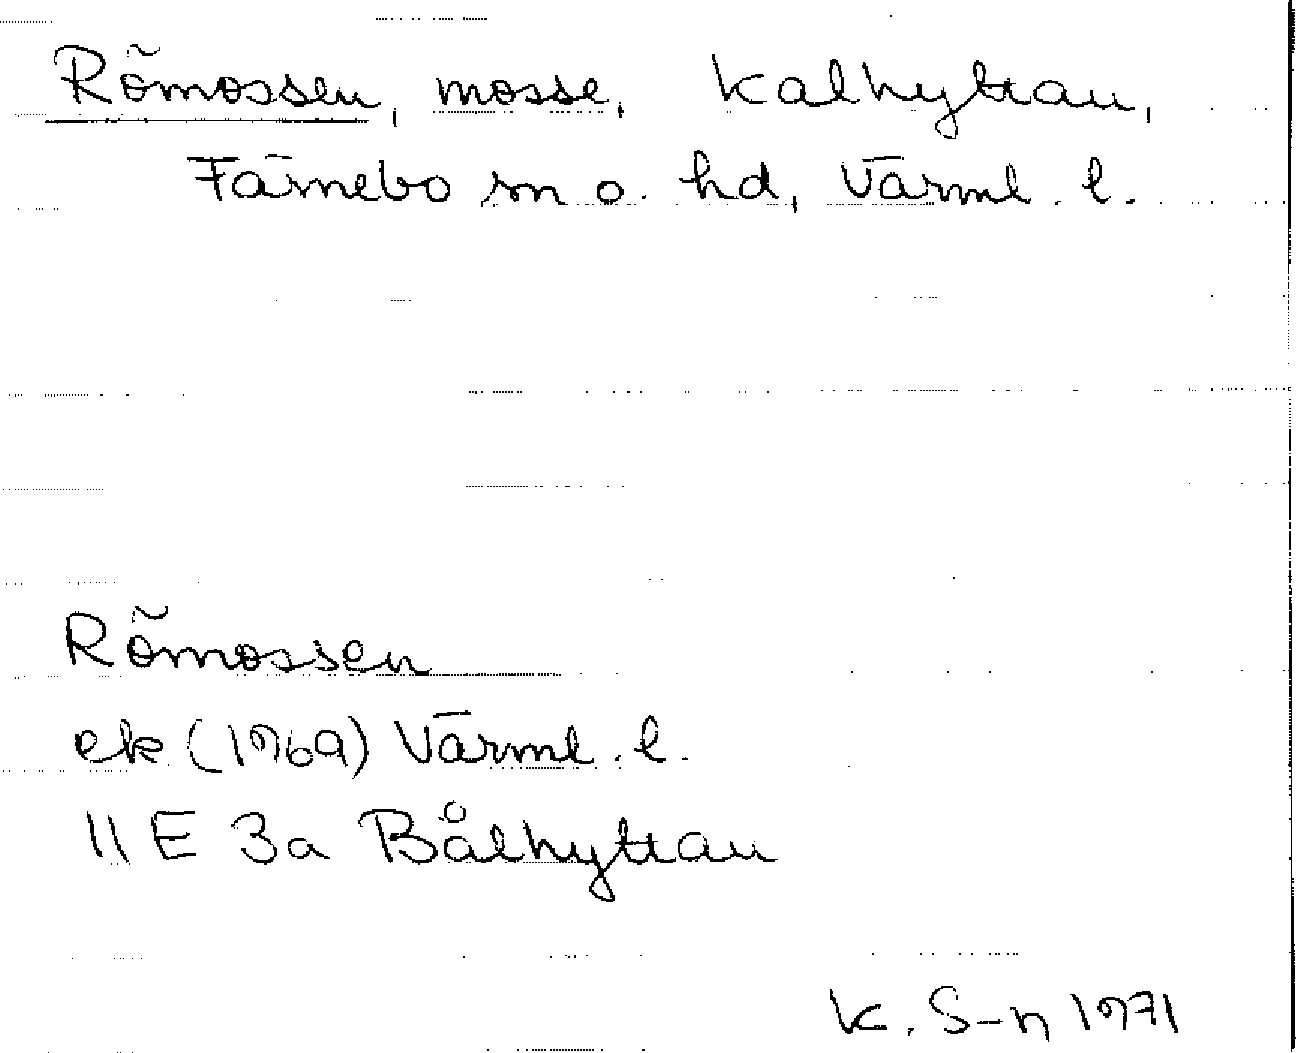 Römossen, mosse, Kalhyttan,
Färnebo sn o. hd, Värml. l.
Römossen
ek (1969) Värml. l.
11 E 3a Bålhyttan
K. S-n 1971